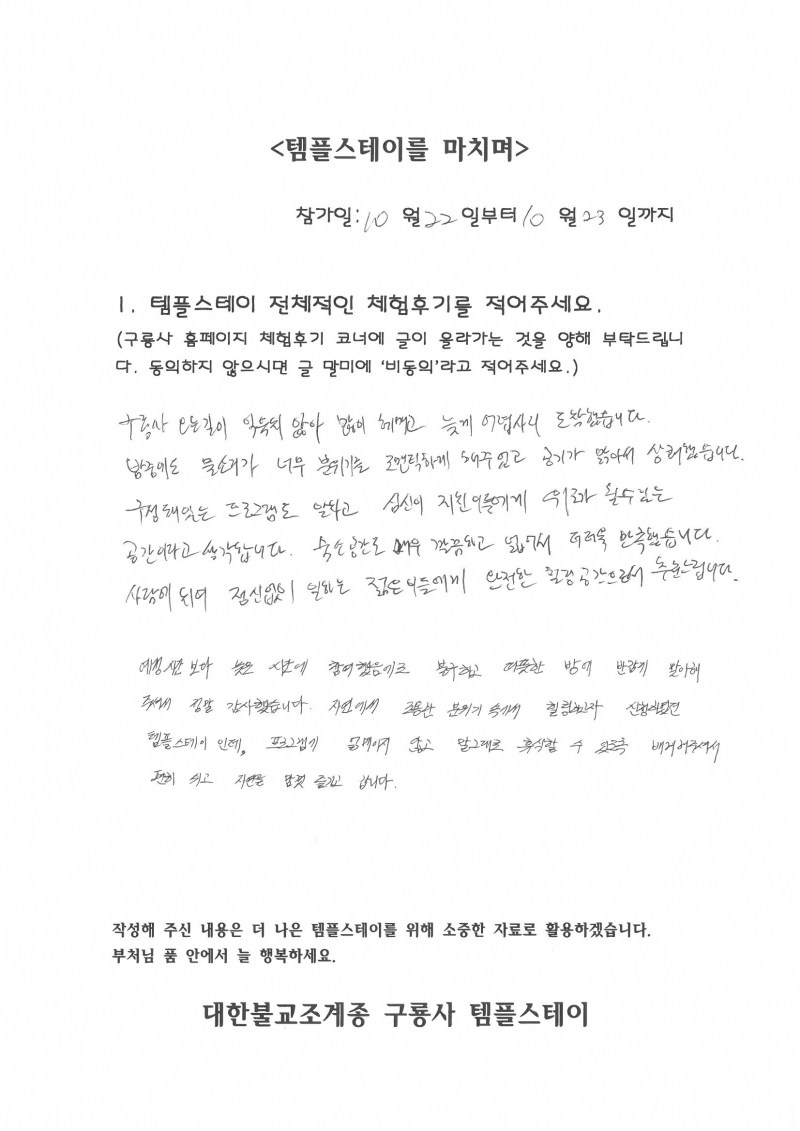 <템플스테이를 마치며>
참가일: 10 월 22 일부터 10 월 23 일까지
1. 템플스테이 전체적인 체험후기를 적어주세요.
(구룡사 홈페이지 체험후기 코너에 글이 올라가는 것을 양해 부탁드립니
다. 동의하지 않으시면 글 말미에 '비동의'라고 적어주세요.)
구룡사 오는길이 익숙치 않아 많이 헤매고 늦게 어렵사리 도착했습니다.
밤중에도 물소리가 너무 분위기를 로맨틱하게 해주었고 공기가 맑아서 상쾌했습니다.
구성돼있는 프로그램도 알차고 심신이 지친이들에게 위로가 될수있는
공간이라고 생각됩니다. 숙소공간도 매우 깔끔하고 넓어서 더더욱 만족했습니다.
사람에 치여 정신없이 일하는 젊은이들에게 완전한 힐링공간으로서 추천드립니다.
예정시간 보다 늦은 시간에 참여했음에도 불구하고 따뜻한 방에 반갑게 맞아해
주셔서 정말 감사했습니다. 자연에서 조용한 분위기 속에서 힐링하고자 신청하였던
템플스테이 인데, 프로그램에 얽매이지 않고 말그대로 휴식할 수 있도록 배려해주셔서
편히 쉬고 자연을 맘껏 즐기고 갑니다.
작성해 주신 내용은 더 나은 템플스테이를 위해 소중한 자료로 활용하겠습니다.
부처님 품 안에서 늘 행복하세요.
대한불교조계종 구룡사 템플스테이